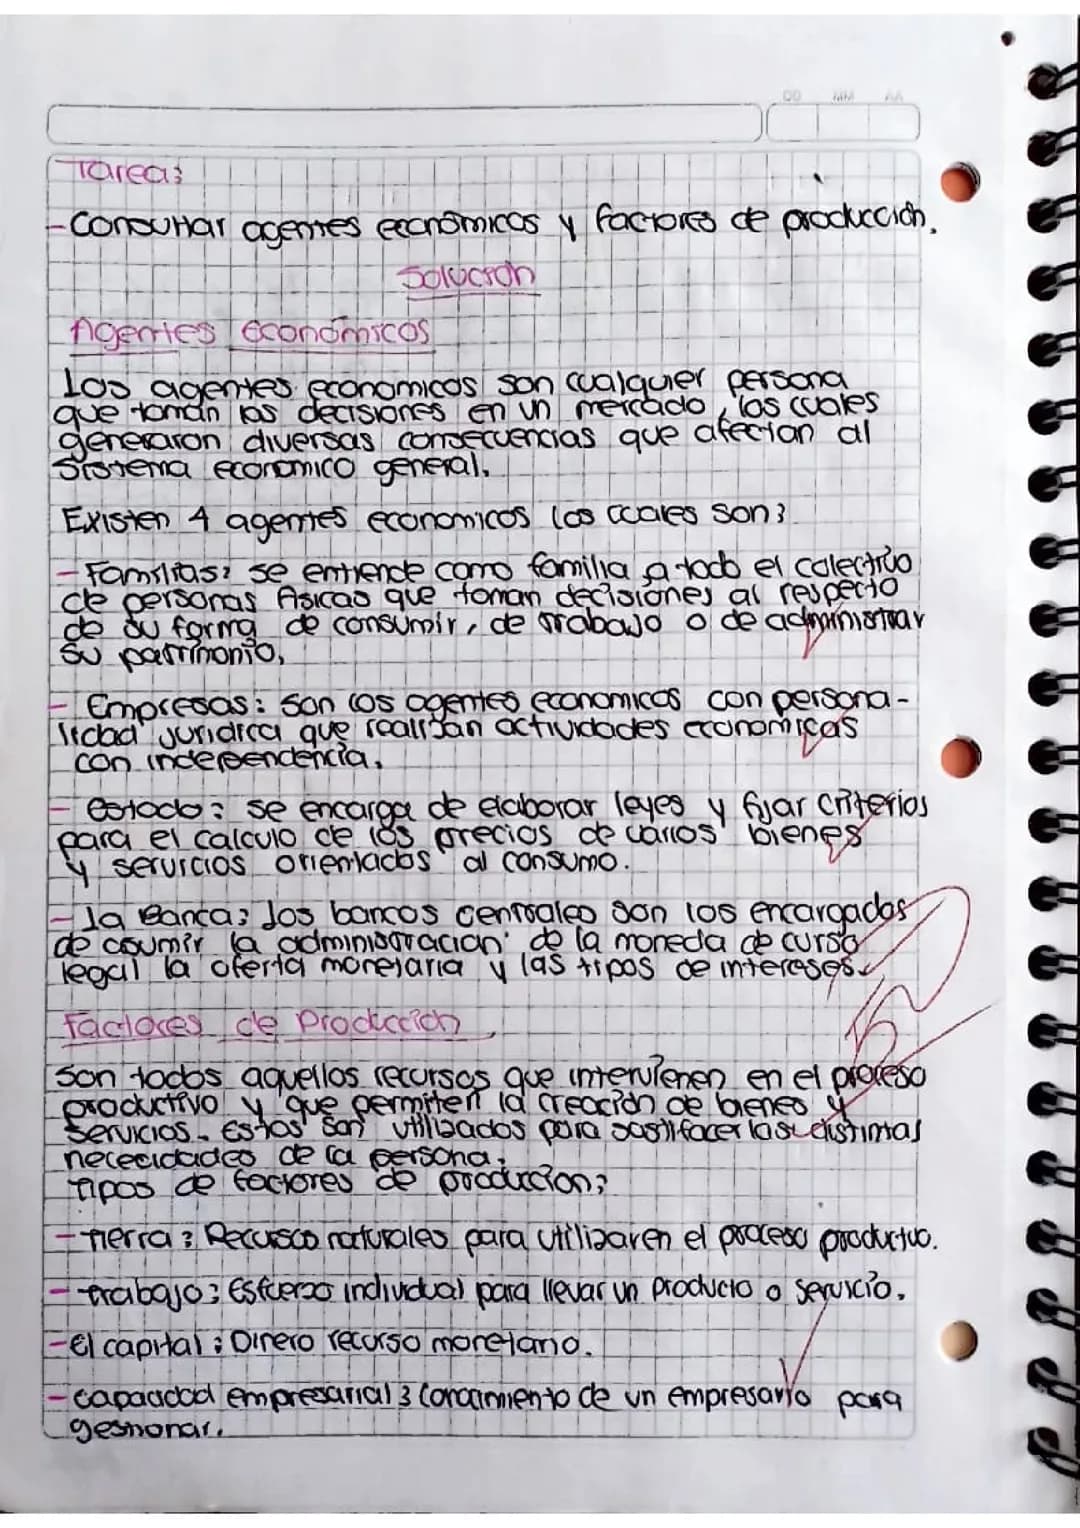 DD MM AA
Tarea:
-Consultar agentes económicos y factores de producción.
Solución
Agentes Económicos
Los agentes economicos son cualquier persona
que toman las decisiones en un mercado, los cuales
generaron diversas consecuencias que afectan al
Sistema economico general.
Existen 4 agentes economicos los cuales son:
- Familias: se entiende como familia a todo el colectivo
de personas físicas que toman decisiones al respecto
de su forma de consumir, de trabajo o de administrar
su patrimonio.
- Empresas: Son los agentes economicos con persona-
lidad juridica que realizan actividades economicas
con independencia.
- estado: se encarga de elaborar leyes y fijar criterios
para el calculo de los precios de varios bienes
y servicios orientados al consumo.
- La Banca: Los bancos centrales son los encargados
de asumir la administracion de la moneda de curso
legal la oferta monetaria y las tipos de intereses.
Factores de Producción
Son todos aquellos recursos que intervienen en el proceso
productivo y que permiten la creación de bienes y
servicios. Estos son utilizados para sastifacer las distintas
nececidades de la persona.
Tipos de factores de produccion:
- Tierra: Recursos naturales para utilizar en el proceso productivo.
- trabajo: Esfuerzo individual para llevar un producto o servicio.
- El capital: Dinero recurso monetario.
- capacidad empresarial: Conocimiento de un empresario para
gestionar.